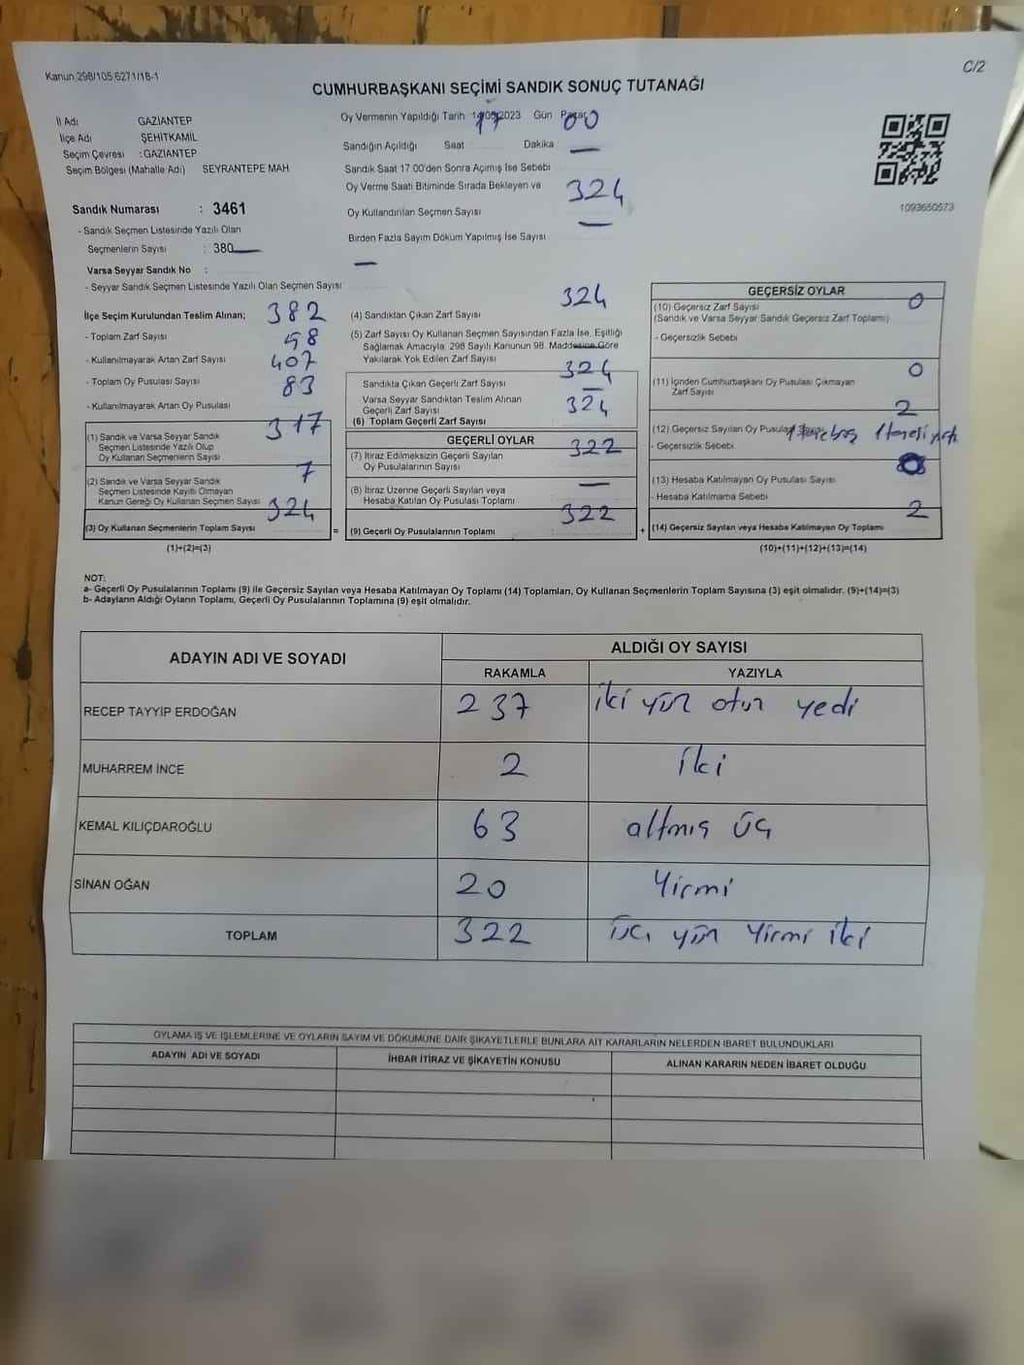 Kanun 298/105,6271/18-1
C/2
CUMHURBAŞKANI SEÇİMİ SANDIK SONUÇ TUTANAĞI
İl Adı GAZİANTEP
İlçe Adı ŞEHİTKAMİL
Seçim Çevresi : GAZİANTEP
Seçim Bölgesi (Mahalle Adı) SEYRANTEPE MAH
Oy Vermenin Yapıldığı Tarih 2023 Gün
Sandığın Açıldığı Saat 17 Dakika 00
Sandık Saat 17 00'den Sonra Açımış İse Sebebi —
Oy Verme Saati Bitiminde Sırada Bekleyen ve
Oy Kullandırılan Seçmen Sayısı 324
Birden Fazla Sayım Döküm Yapılmış İse Sayısı —
1093650573
Sandık Numarası : 3461
- Sandık Seçmen Listesinde Yazılı Olan
Seçmenlerin Sayısı : 380
Varsa Seyyar Sandık No :
- Seyyar Sandık Seçmen Listesinde Yazılı Olan Seçmen Sayısı —
İlçe Seçim Kurulundan Teslim Alınan;
- Toplam Zarf Sayısı 382
- Kullanılmayarak Artan Zarf Sayısı 58
- Toplam Oy Pusulası Sayısı 407
- Kullanılmayarak Artan Oy Pusulası 83
(1) Sandık ve Varsa Seyyar Sandık
Seçmen Listesinde Yazılı Olup
Oy Kullanan Seçmenlerin Sayısı 317
(2) Sandık ve Varsa Seyyar Sandık
Seçmen Listesinde Kayıtlı Olmayan
Kanun Gereği Oy Kullanan Seçmen Sayısı 7
(3) Oy Kullanan Seçmenlerin Toplam Sayısı 324
(1)+(2)=(3)
(4) Sandıktan Çıkan Zarf Sayısı 324
(5) Zarf Sayısı Oy Kullanan Seçmen Sayısından Fazla İse, Eşitliği
Sağlamak Amacıyla 298 Sayılı Kanunun 98. Maddesine Göre
Yakılarak Yok Edilen Zarf Sayısı —
Sandıkta Çıkan Geçerli Zarf Sayısı 324
Varsa Seyyar Sandıktan Teslim Alınan
Geçerli Zarf Sayısı —
(6) Toplam Geçerli Zarf Sayısı 324
GEÇERLİ OYLAR
(7) İtiraz Edilmeksizin Geçerli Sayılan
Oy Pusulalarının Sayısı 322
(8) İtiraz Üzerine Geçerli Sayılan veya
Hesaba Katılan Oy Pusulası Toplamı —
= (9) Geçerli Oy Pusulalarının Toplamı 322
GEÇERSİZ OYLAR
(10) Geçersiz Zarf Sayısı 0
(Sandık ve Varsa Seyyar Sandık Geçersiz Zarf Toplamı)
- Geçersizlik Sebebi
(11) İçinden Cumhurbaşkanı Oy Pusulası Çıkmayan
Zarf Sayısı 0
(12) Geçersiz Sayılan Oy Pusulası 2
- Geçersizlik Sebebi 1 tane boş 1 tanesi
(13) Hesaba Katılmayan Oy Pusulası Sayısı
- Hesaba Katılmama Sebebi
+ (14) Geçersiz Sayılan veya Hesaba Katılmayan Oy Toplamı 2
(10)+(11)+(12)+(13)=(14)
NOT:
a- Geçerli Oy Pusulalarının Toplamı (9) ile Geçersiz Sayılan veya Hesaba Katılmayan Oy Toplamı (14) Toplamları, Oy Kullanan Seçmenlerin Toplam Sayısına (3) eşit olmalıdır. (9)+(14)=(3)
b- Adayların Aldığı Oyların Toplamı, Geçerli Oy Pusulalarının Toplamına (9) eşit olmalıdır.
ADAYIN ADI VE SOYADI
ALDIĞI OY SAYISI
RAKAMLA YAZIYLA
RECEP TAYYİP ERDOĞAN 237 iki yüz otuz yedi
MUHARREM İNCE 2 iki
KEMAL KILIÇDAROĞLU 63 altmış üç
SİNAN OĞAN 20 Yirmi
TOPLAM 322 üç yüz Yirmi iki
OYLAMA İŞ VE İŞLEMLERİNE VE OYLARIN SAYIM VE DÖKÜMÜNE DAİR ŞİKAYETLERLE BUNLARA AİT KARARLARIN NELERDEN İBARET BULUNDUKLARI
ADAYIN ADI VE SOYADI İHBAR İTİRAZ VE ŞİKAYETİN KONUSU ALINAN KARARIN NEDEN İBARET OLDUĞU